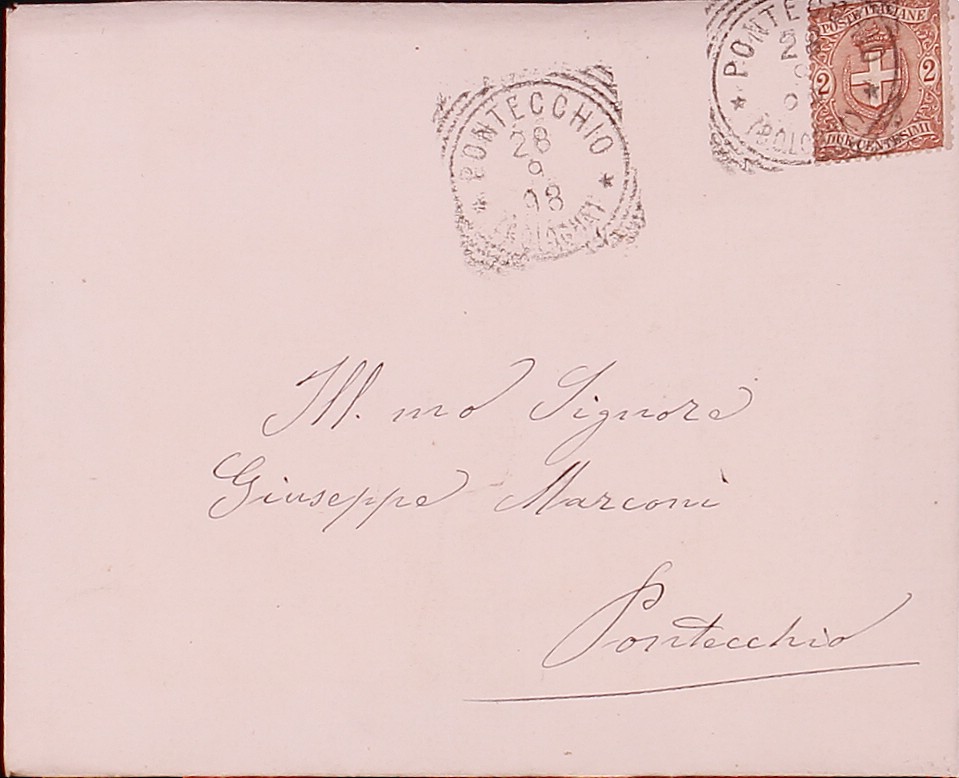 PONTECCHIO
28
9
98
(BOLOGNA)
PONTE
2
9
(BOLO
POSTE ITALIANE
2 2
DUE CENTESIMI
Ill.mo Signore
Giuseppe Marconi
Pontecchio